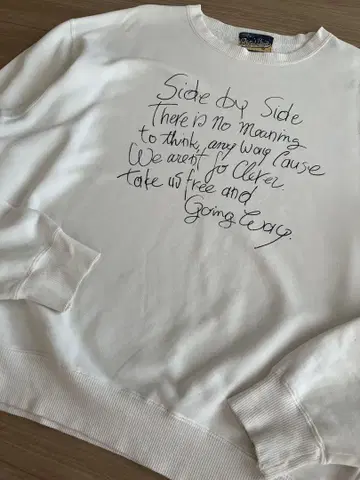 Side by Side
There is no Meaning
to think, any way Cause
We arent so Clever.
take us free and
Going Way.